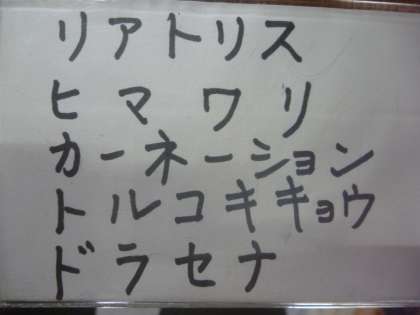 リアトリス
ヒマワリ
カーネーション
トルコキキョウ
ドラセナ